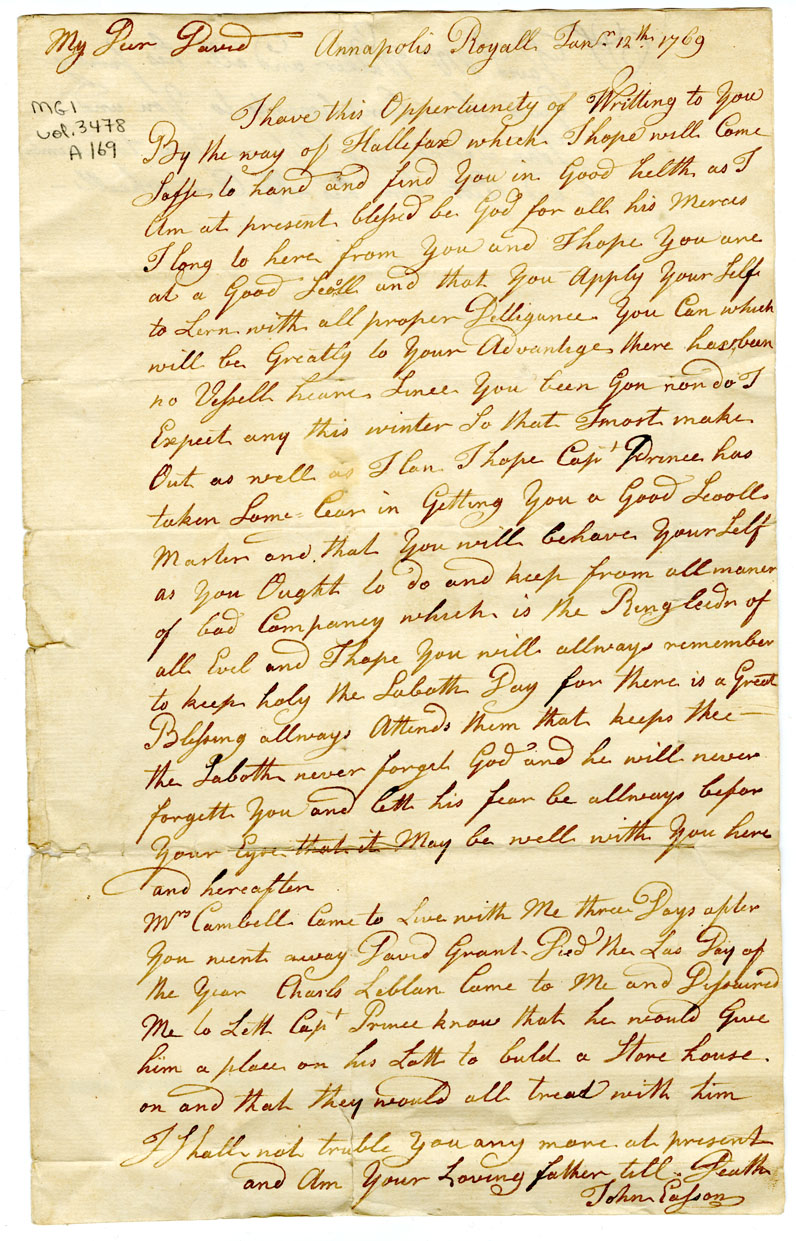 My Deer David Annapolis Royall Janr. 12th. 1769
MG1
vol. 3478
A 169
I have this Oppertuinety of Writting to You
By the way of Hallefax which I hope will Come
Saffe to hand and find You in Good helth as I
Am at present blessed be God for all his Merces
I long to here from You and I hope You are
at a Good Scoll and that You Apply Your Self
to Lern with all proper Delligance You Can which
will be Greatly to Your Advantige there has been
no Vessell heare Since You been Gon nor do I
Expect any this winter So that I most make
Out as well as I Can I hope Capt Prince has
taken Some Cear in Getting You a Good Scooll
Master and that You will behave Your Self
as You Ought to do and keep from all maner
of bad Company which is the Ringleedr of
all Evel and I hope You will allways remember
to keep holy the Saboth Day for there is a Great
Blessing allways Attends them that keeps thee
the Saboth never forget God and he will never
forgett You and lett his fear be allways befor
Your Eyre that it May be well with You here
and hereafter
Mrs Cambell Came to Live with Me three Days after
You went away David Grant Died the Las Day of
the Year Charls Leblan Came to Me and Dissired
Me to Lett Capt Prince know that he would Give
him a place on his Lott to buld a Store house
on and that they would all tread with him
I Shall not truble You any more at present
and Am Your Loving father till Death
John Easson